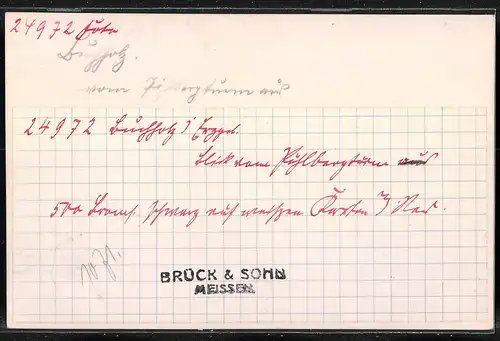 24972 Foto
Buchholz.
vom Pöhlbergturm aus
24972 Buchholz i/ Erzgeb.
Blick vom Pöhlbergturm aus
500 Broms. schwarz auf weissen Karton
BRÜCK & SOHN
MEISSEN.